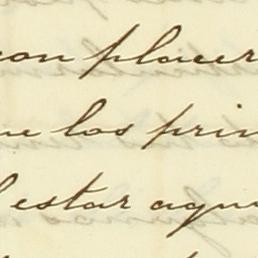 con placer
ue los prin
l estar aqu